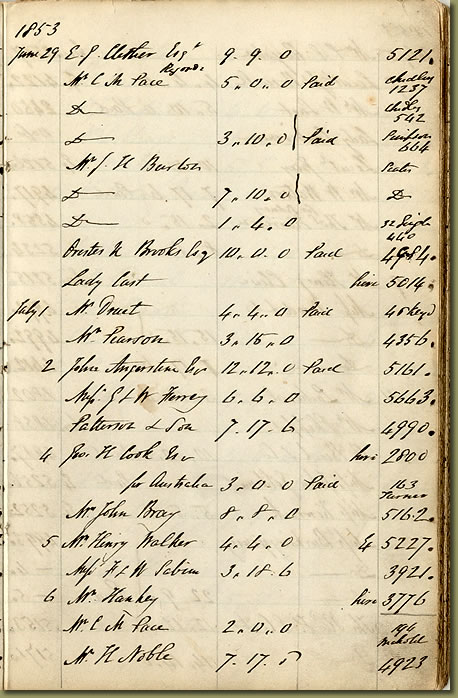 1853
June 29 E. J. Esqr 9. 9. 0 5121.
Mr C M Pace 5. 0. 0 Paid Chidley 1237
D Chidley 542
D 3. 10. 0 Paid Simpson 664
Mr J. H Burton
D 7. 10. 0 D
D 1. 4. 0 32
Orester N Brooks Esq 10. 0. 0 Paid 4984.
Lady Cust hire 5014.
July 1 Mr Druet 4. 4. 0 Paid 45 keyd
Mr Pearson 3. 15. 0 4356.
2 John Angerstein Esq 12. 12. 0 Paid 5161.
6. 6. 0 5663.
Patterson & Son 7. 17. 6 4990.
4 Jos. H Cook Esq hire 2800
for Australia 3. 0. 0 Paid 163 Turner
Mr John Bray 8. 8. 0 5162.
5 Mr Henry Walker 4. 4. 0 5227.
F & W Sabin 3. 18. 6 3921.
6 Mr Hankey hire 3776
Mr C M Pace 2. 0. 0 Nicholls
Mr H Noble 7. 17. 4923